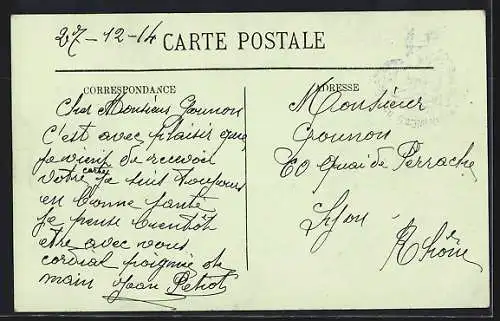 27-12-14
CARTE POSTALE
CORRESPONDANCE
Cher Monsieur Gounon
C'est avec plaisir que
je vient de recevoir
votre carte je suis toujours
en bonne santé
je pense bientôt
etre avec vous
cordial poignie de
main Jean Petiot
ADRESSE
Monsieur
Gounon
60 Quai de Perrache
Lyon
Rhône